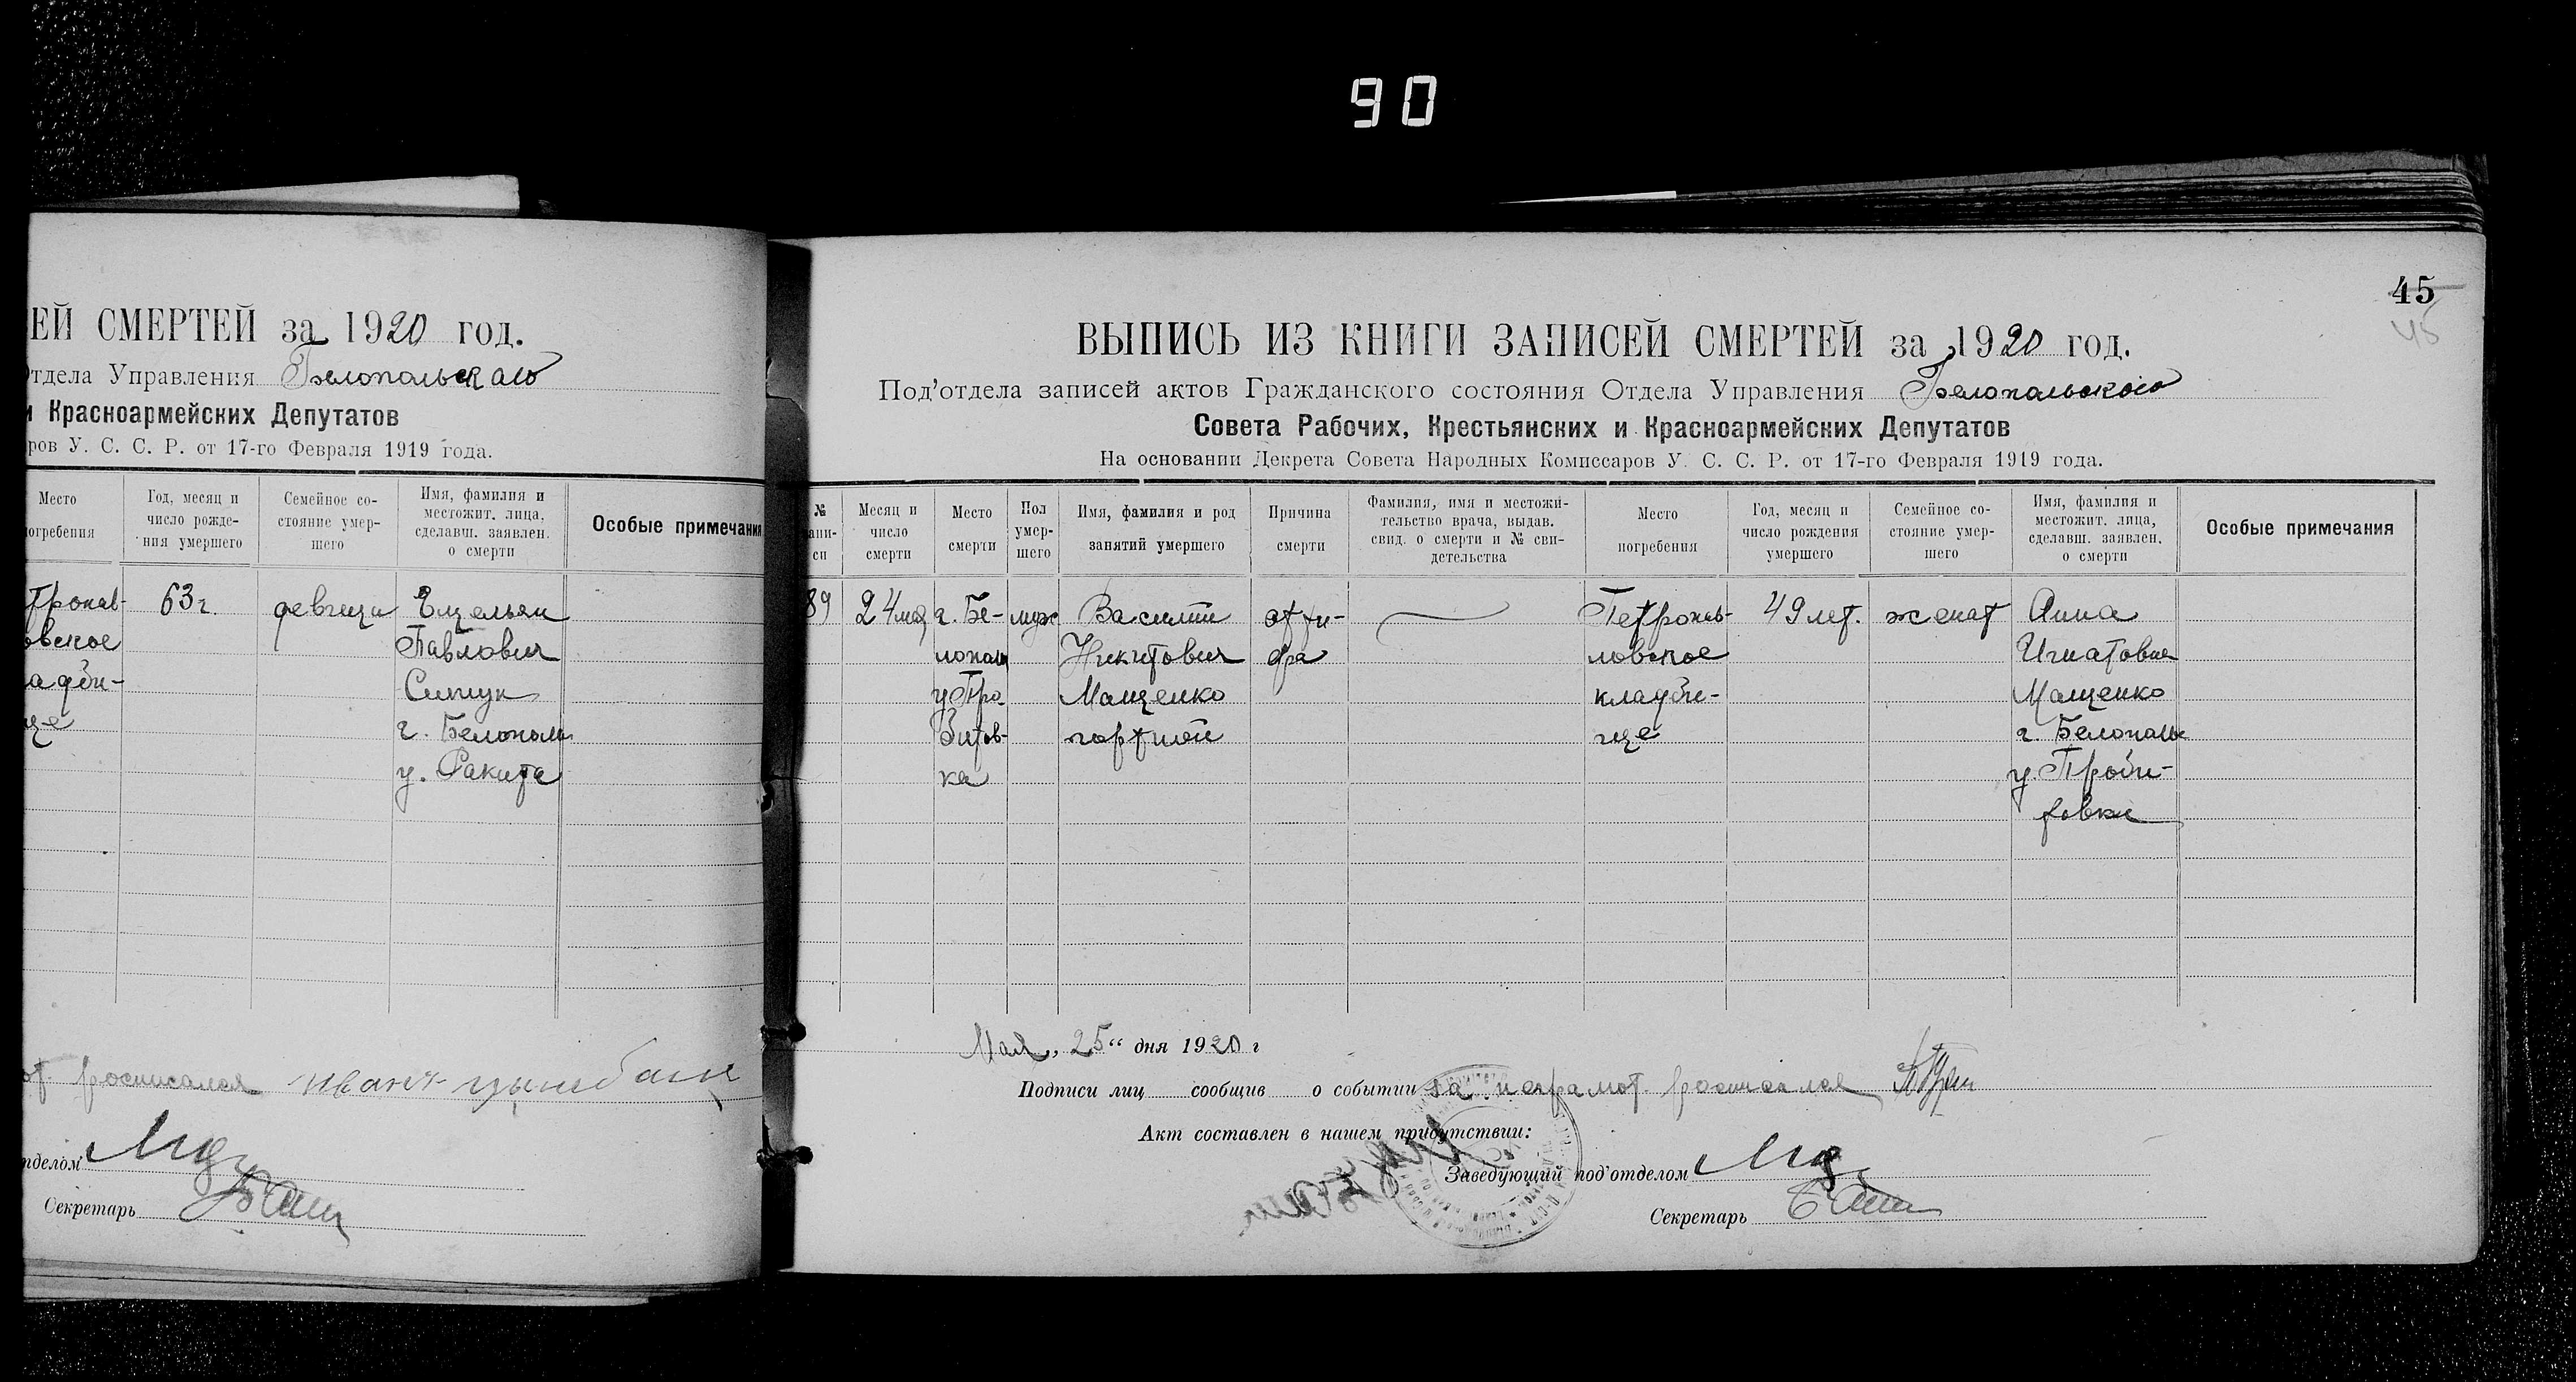 90
ЕЙ СМЕРТЕЙ за 1920 год.
Отдела Управления Белопольскаго
и Красноармейских Депутатов
ров У. С. С. Р. от 17-го Февраля 1919 года.
Место
погребения
Год, месяц и
число рожде-
ния умершего
Семейное со-
стояние умер-
шего
Имя, фамилия и
местожит. лица,
сделавш. заявлен.
о смерти
Особые примечания
тропав-
овское
адби-
ще
63 г.
девица
Емельян
Павлович
г. Белополье
у. Ракита
от. росписался Иван
тделом
Секретарь
45
45
ВЫПИСЬ ИЗ КНИГИ ЗАПИСЕЙ СМЕРТЕЙ за 1920 год.
Под’отдела записей актов Гражданского состояния Отдела Управления Белопольского
Совета Рабочих, Крестьянских и Красноармейских Депутатов
На основании Декрета Совета Народных Комиссаров У. С. С. Р. от 17-го Февраля 1919 года.
№
апи-
си
Месяц и
число
смерти
Место
смерти
Пол
умер-
шего
Имя, фамилия и род
занятий умершего
Причина
смерти
Фамилия, имя и местожи-
тельство врача, выдав.
свид. о смерти и № сви-
детельства
Место
погребения
Год, месяц и
число рождения
умершего
Семейное со-
стояние умер-
шего
Имя, фамилия и
местожит. лица,
сделавш. заявлен.
о смерти
Особые примечания
89
24 мая
г. Бе-
лополь
у Про
битов-
ка
муж
Василий
Никитович
Мащенко
портной
Петропав-
ловское
кладби-
ще
49 лет.
женат
Анна
Игнатовна
Мащенко
г. Белополье
у. Проби-
товка
Мая „25“ дня 1920 г
Подписи лиц сообщив о событии за неграмот. росписался
Акт составлен в нашем присутствии:
Заведующий под’отделом
Секретарь